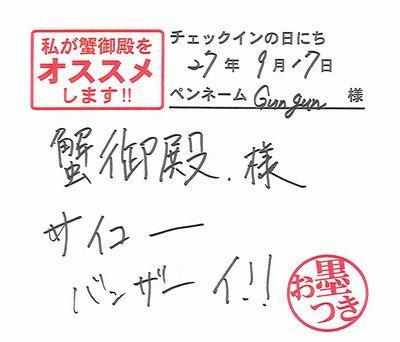 私が蟹御殿を
オススメ
します!!
チェックインの日にち
27年9月17日
ペンネーム Gungun 様
蟹御殿.様
サイコー
バンザーイ!!
お墨つき